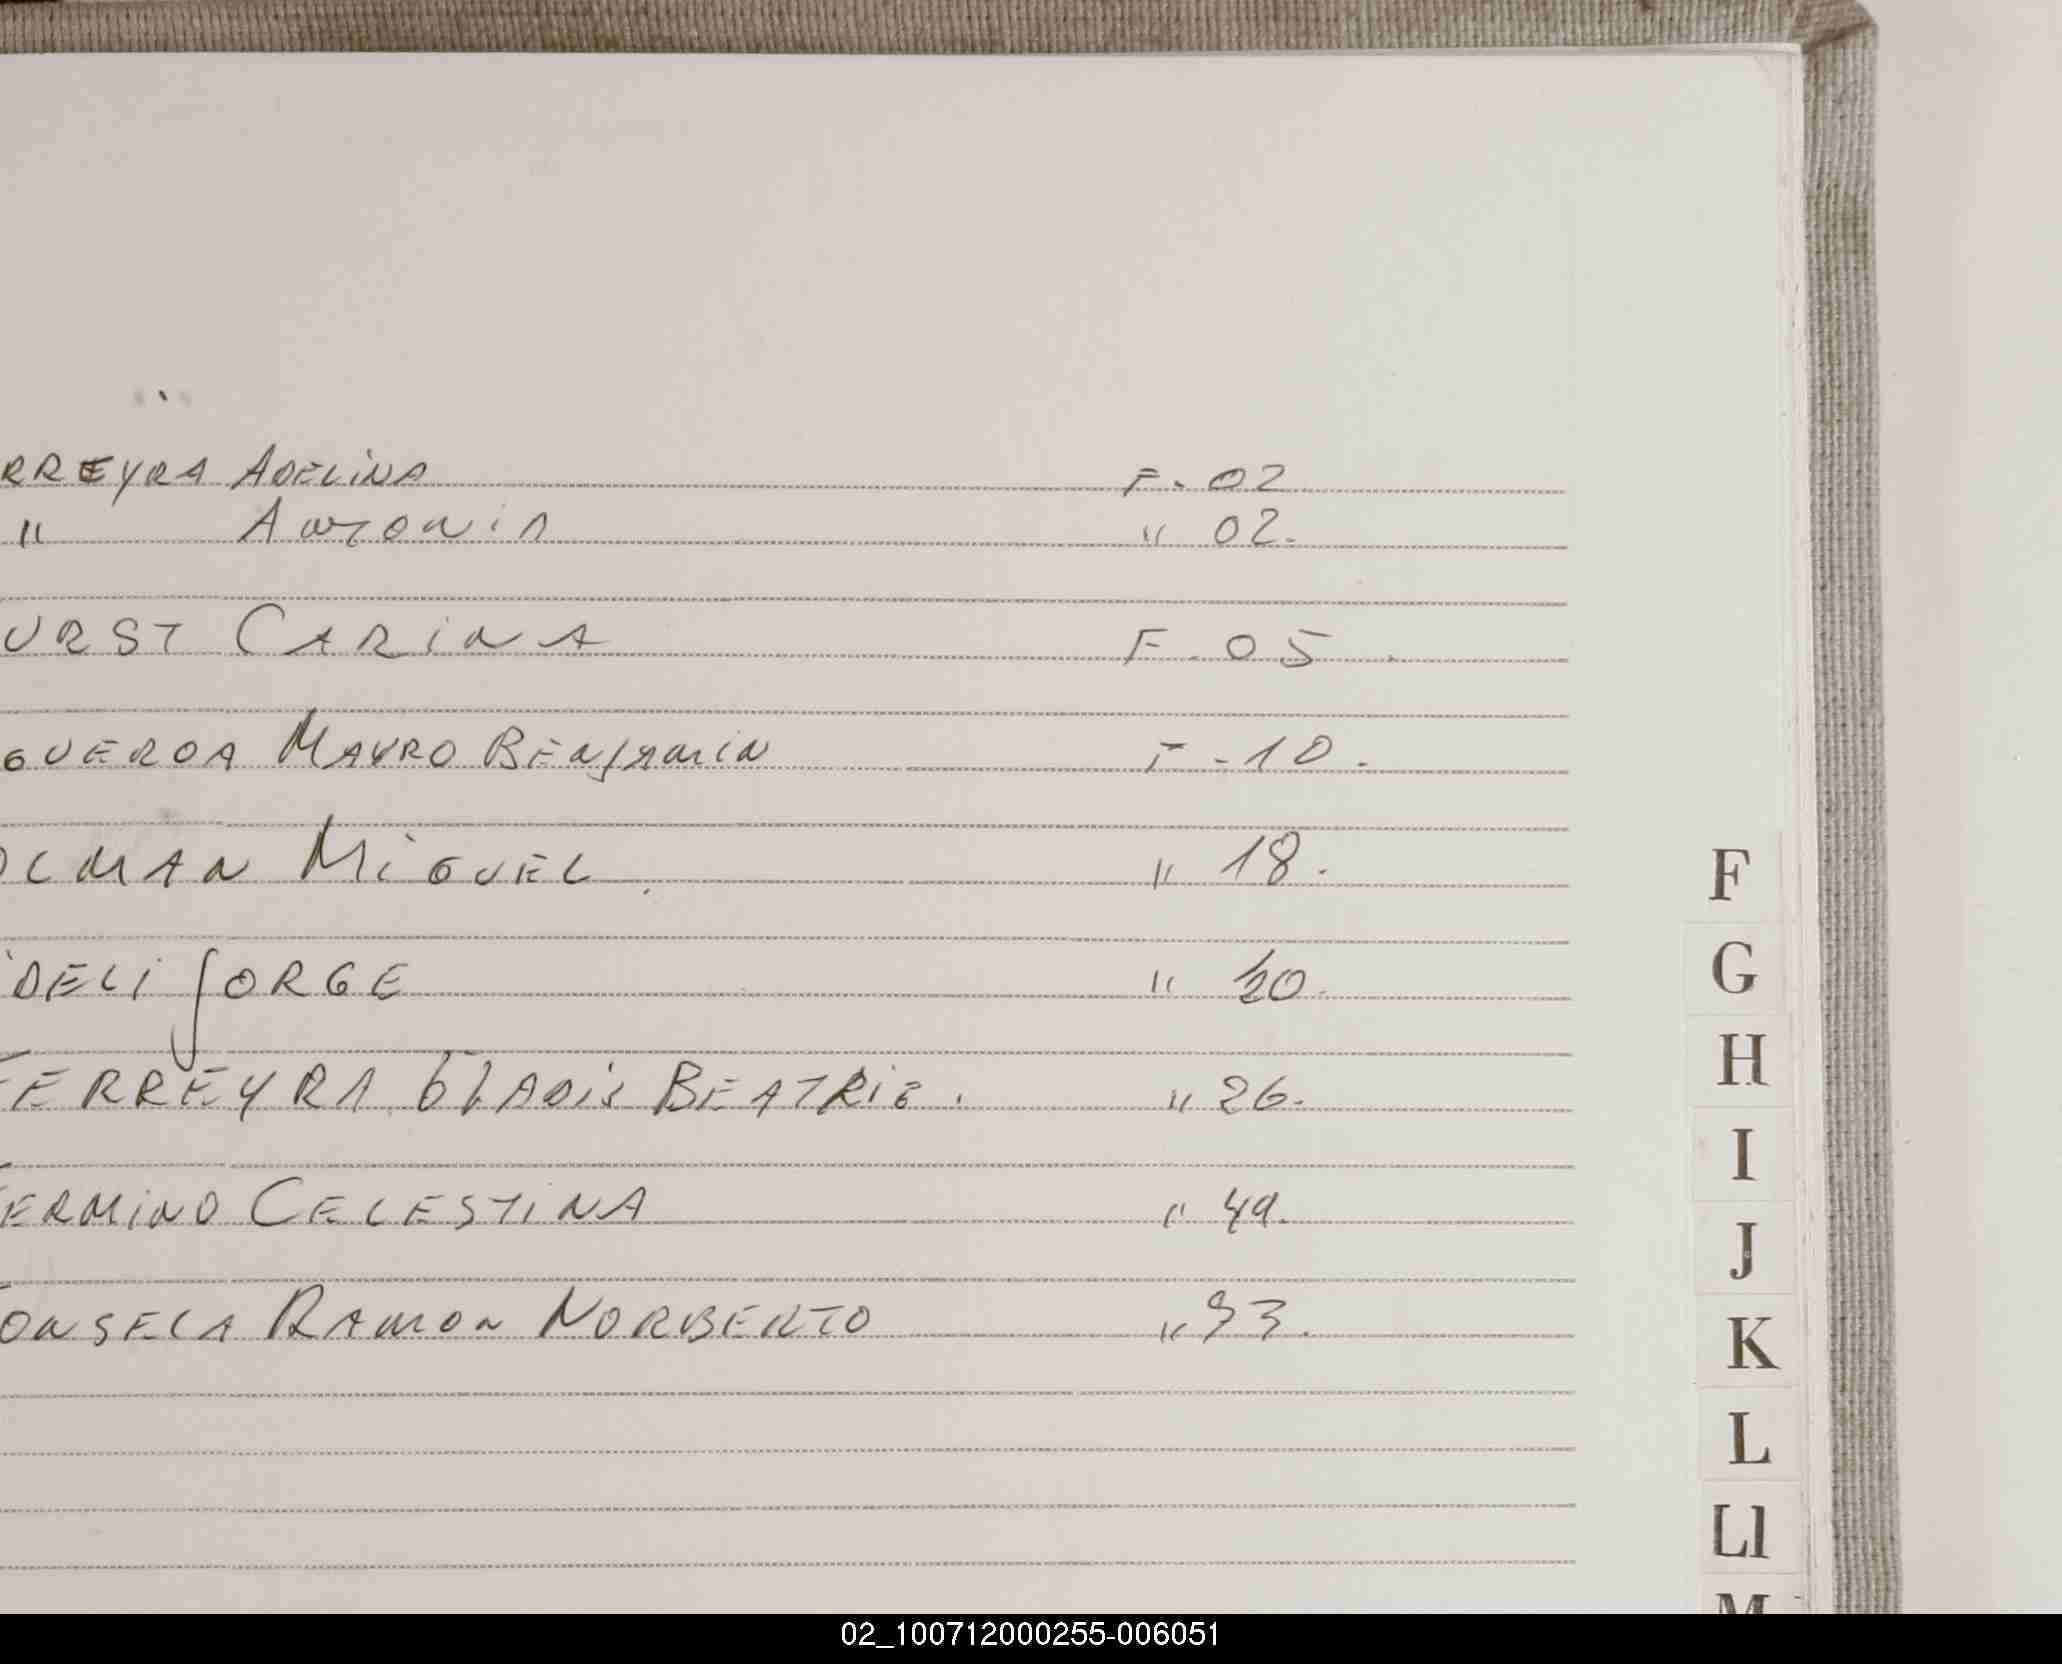 RREYRA ADELINA F. 02
" ANTONIA " 02.
URST CARINA F. 05.
GUEROA MAURO BENJAMIN F - 10.
OLMAN MIGUEL. " 18.
IDELI JORGE " 20.
FERREYRA GLADIS BEATRIZ. " 26.
FERMINO CELESTINA " 49.
FONSECA RAMON NORBERTO " 93.
F
G
H
I
J
K
L
Ll
M
02_100712000255-006051